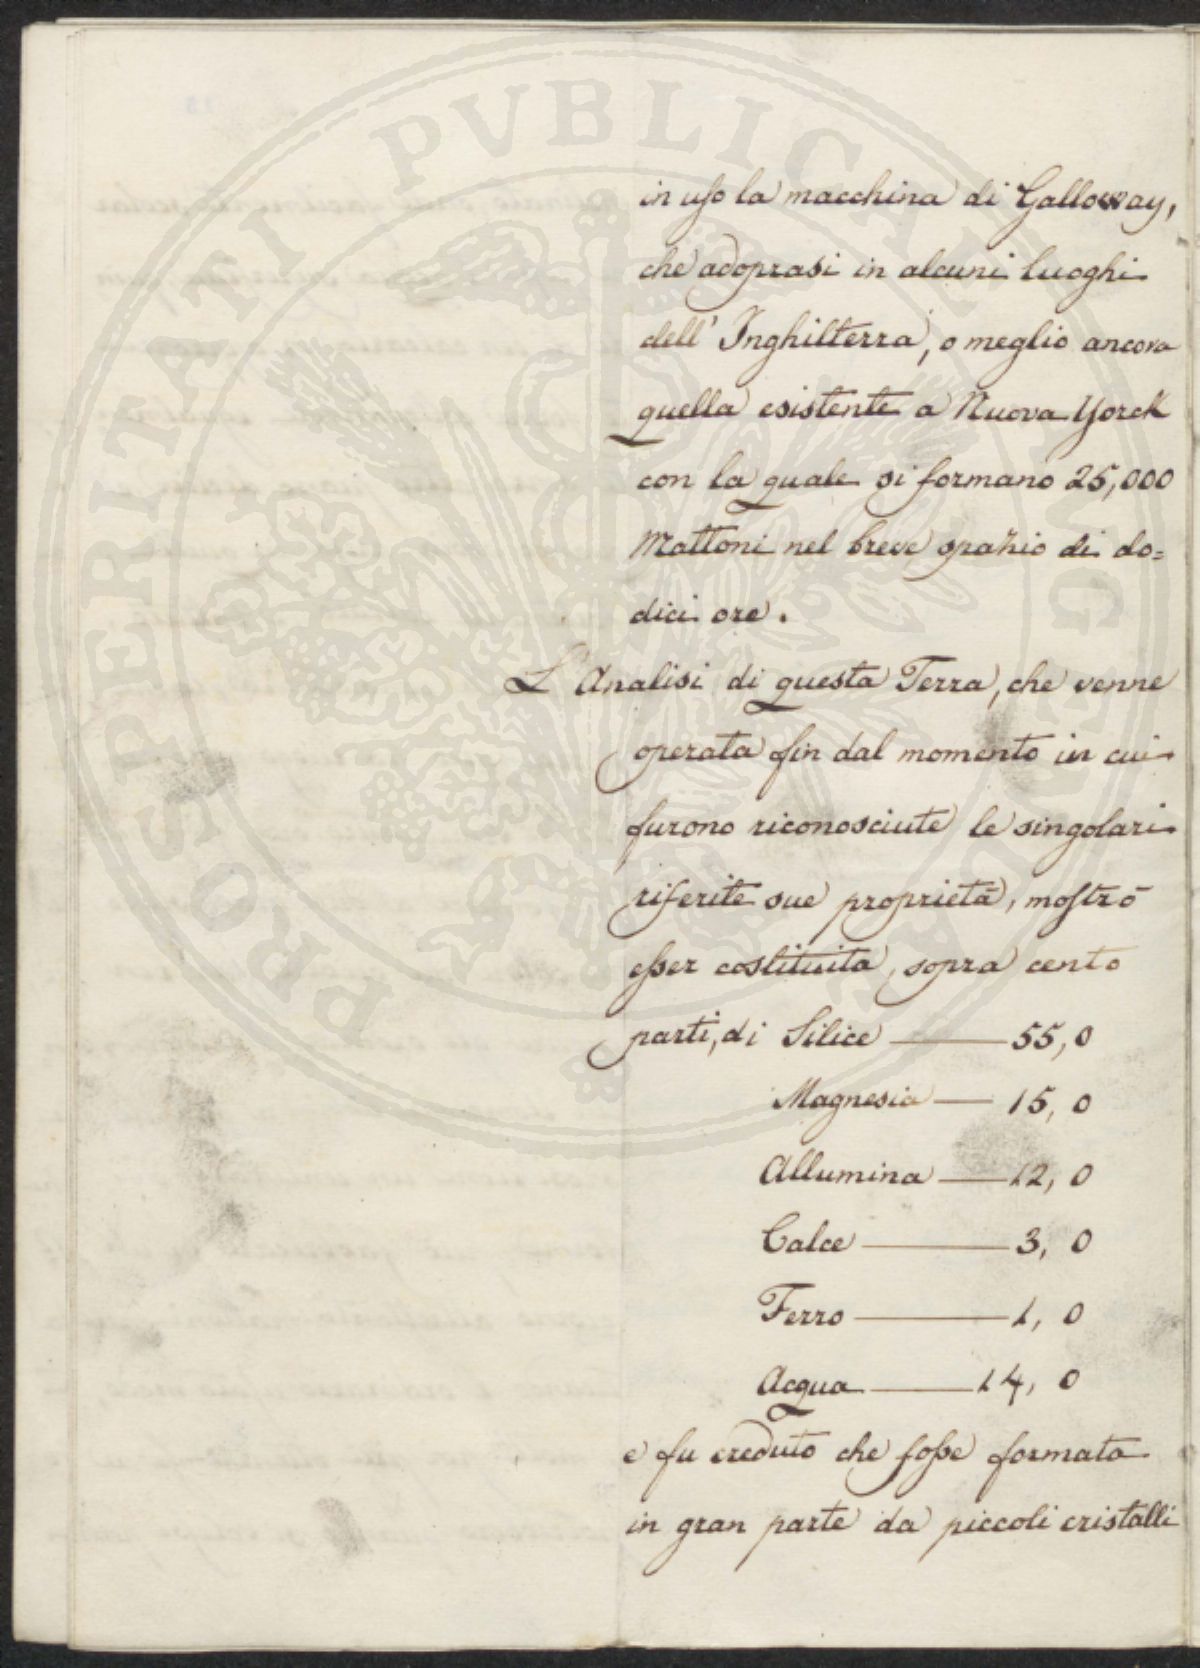 in uso la macchina di Galloway,
che adoprasi in alcuni luoghi
dell' Inghilterra, o meglio ancora
quella esistente a Nuova Yorck
con la quale si formano 25,000
Mattoni nel breve spazio di do=
dici ore.
L'Analisi di questa Terra, che venne
operata fin dal momento in cui
furono riconosciute le singolari
riferite sue proprietà, mostrò
esser costituita, sopra cento
parti, di Silice — 55,0
Magnesia — 15,0
Allumina — 12,0
Calce — 3,0
Ferro — 1,0
Acqua — 14,0
e fu creduto che fosse formata
in gran parte da piccoli cristalli
PROSPERITATI PVBLICAE